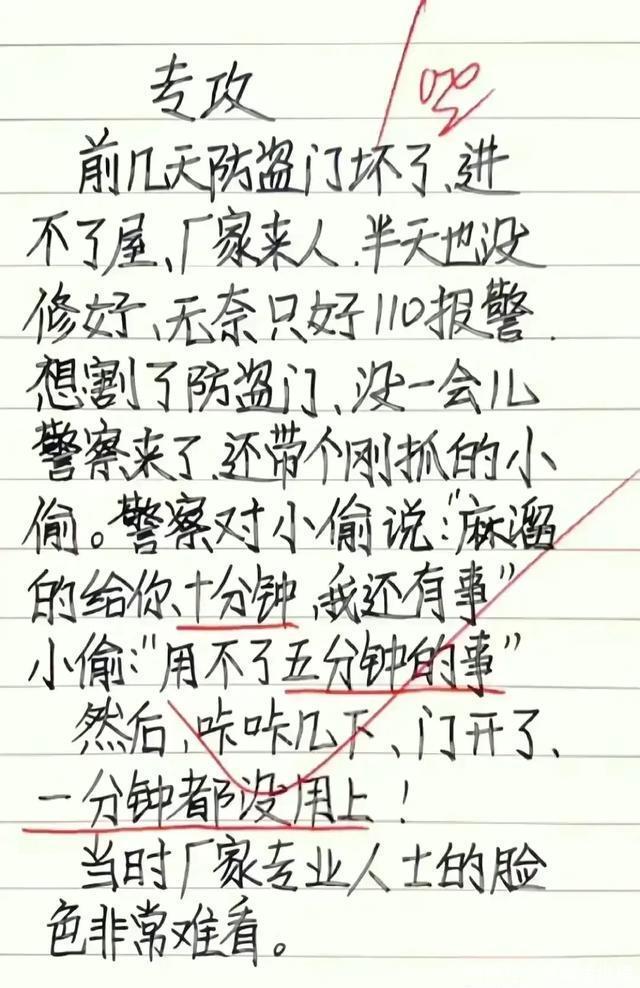 专攻
前几天防盗门坏了、进
不了屋、厂家来人、半天也没
修好、无奈只好110报警.
想割了防盗门、没一会儿
警察来了、还带个刚抓的小
偷。警察对小偷说:"麻溜
的给你、十分钟、我还有事"
小偷:"用不了五分钟的事"
然后、咔咔几下、门开了、
一分钟都没用上!
当时厂家专业人士的脸
色非常难看。